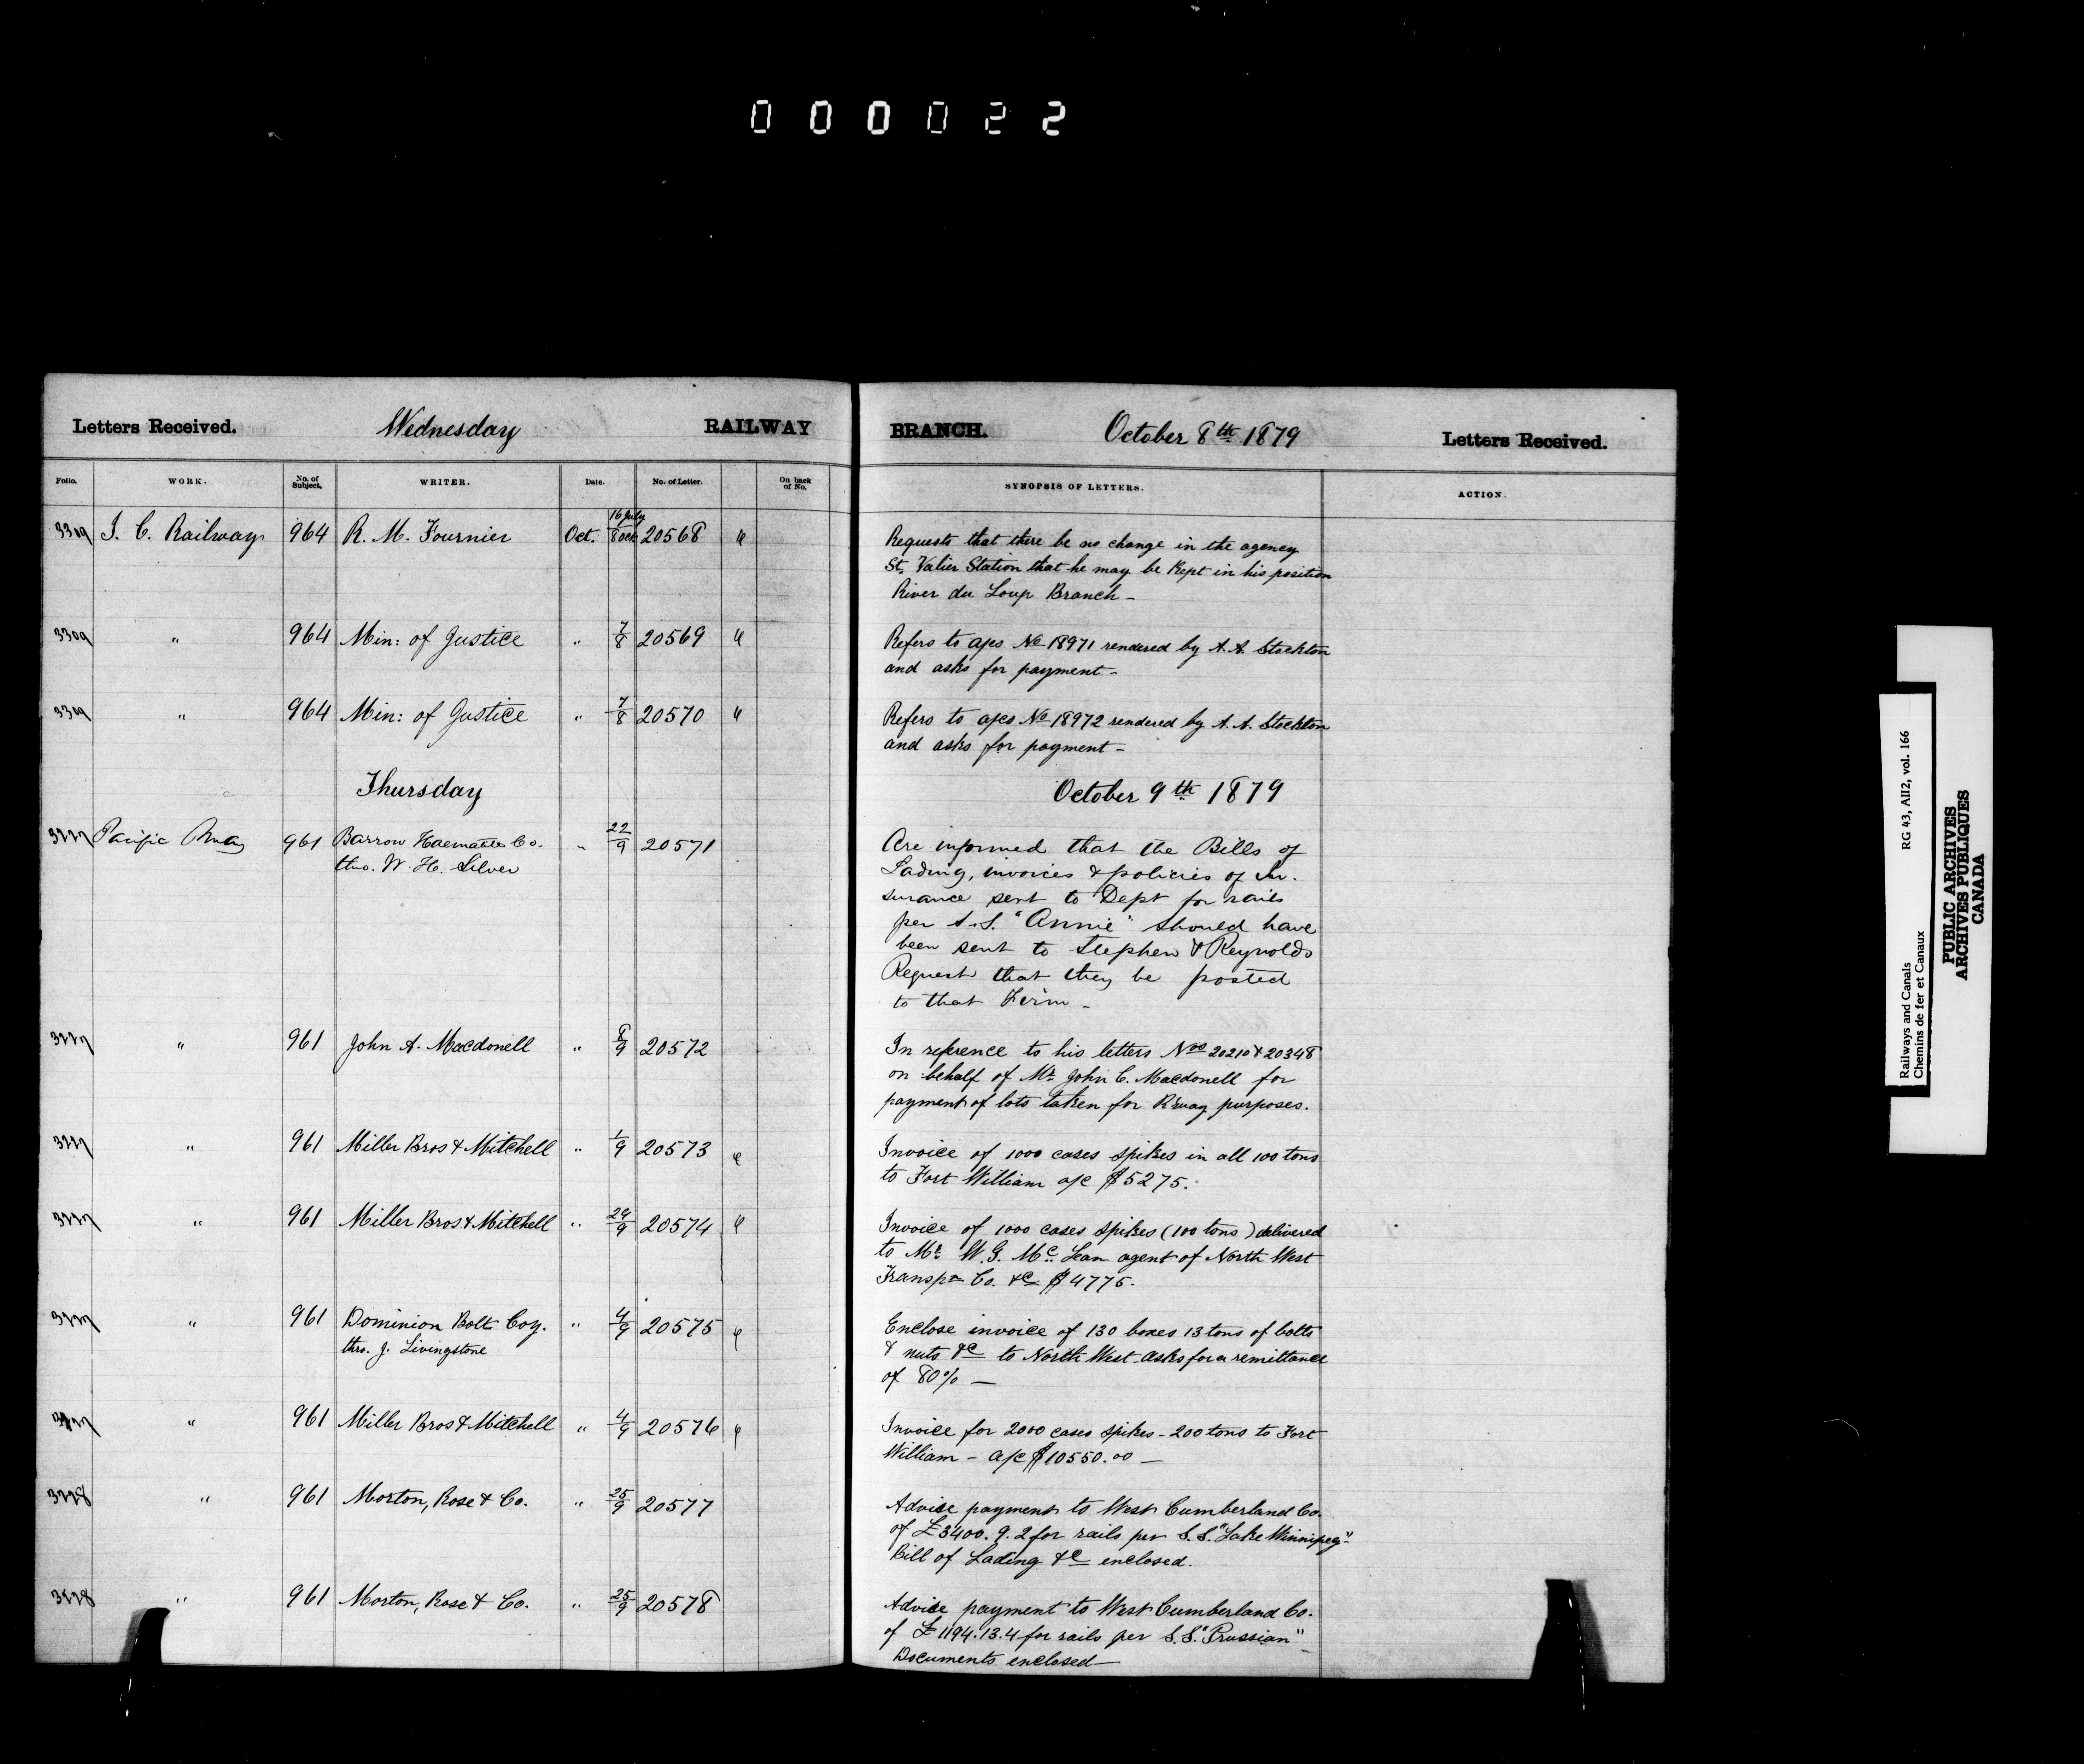 000022
Letters Received. Wednesday RAILWAY BRANCH. October 8th 1879 Letters Received.
Folio. WORK. No. of Subject. WRITER. Date. No. of Letter. On back of No. SYNOPSIS OF LETTERS. ACTION.
16 July
3309 I. C. Railway 964 R. M. Fournier Oct. 8 Oct 20568 "
Requests that there be no change in the agency
St. Valier Station that he may be Kept in his position
River du Loup Branch -
3309 " 964 Min: of Justice " 7/8 20569 "
Refers to a/cs No 18971 rendered by A. A. Stockton
and asks for payment -
3309 " 964 Min: of Justice " 7/8 20570 "
Refers to a/cs No 18972 rendered by A. A. Stockton
and asks for payment -
Thursday October 9th 1879
3227 Pacific Rway 961 Barrow Haematite Co. " 22/9 20571
thro. W. H. Silver
Are informed that the Bills of
Lading, invoices & policies of In-
surance sent to Dept for rails
per S.S. "Annie" should have
been sent to Stephen & Reynolds
Request that they be posted
to that Firm -
3227 " 961 John A. Macdonell " 8/9 20572
In reference to his letters Nos 20210 & 20348
on behalf of Mr John C. Macdonell for
payment of lots taken for Rway purposes.
3227 " 961 Miller Bros & Mitchell " 1/9 20573
Invoice of 1000 cases spikes in all 100 tons
to Fort William a/c $5275.
3227 " 961 Miller Bros & Mitchell " 29/9 20574
Invoice of 1000 cases spikes (100 tons) delivered
to Mr W. G. McLean agent of North West
Transpn Co. &c $4775.
3227 " 961 Dominion Bolt Coy. " 4/9 20575
thro. J. Livingstone
Enclose invoice of 130 boxes 13 tons of bolts
& nuts &c to North West. Asks for a remittance
of 80% —
3227 " 961 Miller Bros & Mitchell " 4/9 20576
Invoice for 2000 cases spikes - 200 tons to Fort
William - a/c $10550.00 —
3228 " 961 Morton, Rose & Co. " 25/9 20577
Advise payment to West Cumberland Co.
of £3400. 9. 2 for rails per S.S. "Lake Winnipeg"
Bill of Lading &c enclosed.
3228 " 961 Morton, Rose & Co. " 25/9 20578
Advise payment to West Cumberland Co.
of £1194.13.4 for rails per S.S. "Prussian"
Documents enclosed—
Railways and Canals RG 43, AII2, vol. 166
Chemins de fer et Canaux
PUBLIC ARCHIVES
ARCHIVES PUBLIQUES
CANADA